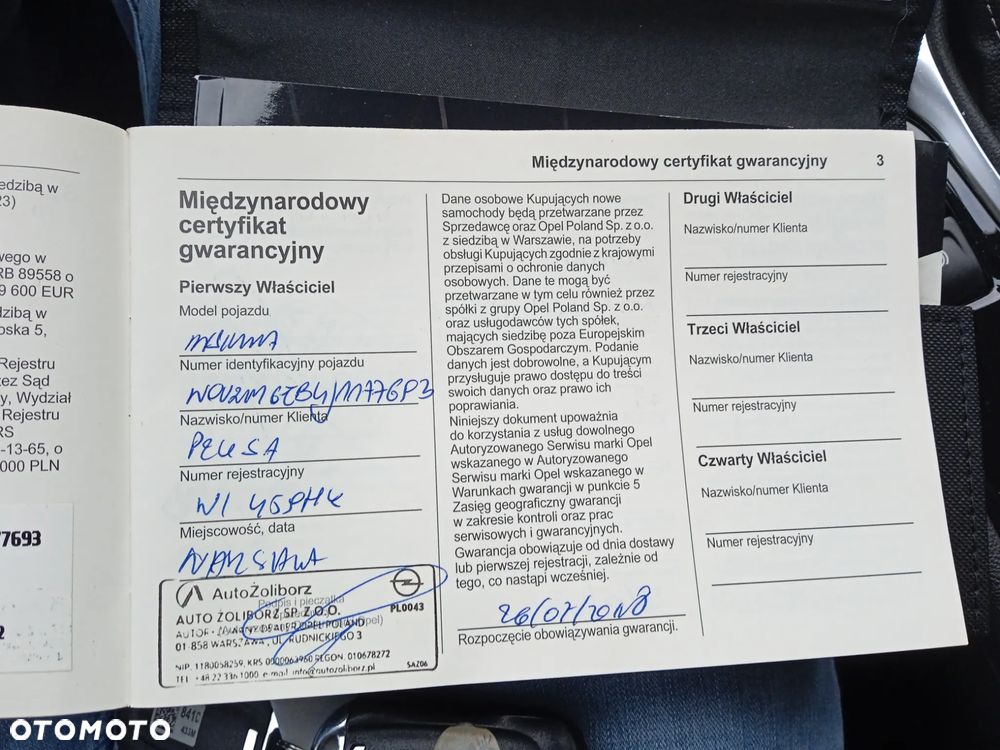 edzibą w
23)
wego w
RB 89558 o
9 600 EUR
dzibą w
oska 5,
Rejestru
zez Sąd
y, Wydział
Rejestru
RS
-13-65, o
000 PLN
77693
Międzynarodowy certyfikat gwarancyjny 3
Międzynarodowy
certyfikat
gwarancyjny
Pierwszy Właściciel
Model pojazdu
Numer identyfikacyjny pojazdu
Nazwisko/numer Klienta
PELSA
Numer rejestracyjny
Miejscowość, data
WARSZAWA
AutoŻoliborz
Podpis i pieczątka
PL0043
AUTO ŻOLIBORZ SP. Z O.O.
DEALER OPEL POLAND
01-858 WARSZAWA, UL. RUDNICKIEGO 3
NIP. 1180058259, KRS 0000063960 REGON. 010678272
SAZ06
TEL. +48 22 336 1000 e-mail: info@autozoliborz.pl
Dane osobowe Kupujących nowe
samochody będą przetwarzane przez
Sprzedawcę oraz Opel Poland Sp. z o.o.
z siedzibą w Warszawie, na potrzeby
obsługi Kupujących zgodnie z krajowymi
przepisami o ochronie danych
osobowych. Dane te mogą być
przetwarzane w tym celu również przez
spółki z grupy Opel Poland Sp. z o.o.
oraz usługodawców tych spółek,
mających siedzibę poza Europejskim
Obszarem Gospodarczym. Podanie
danych jest dobrowolne, a Kupującym
przysługuje prawo dostępu do treści
swoich danych oraz prawo ich
poprawiania.
Niniejszy dokument upoważnia
do korzystania z usług dowolnego
Autoryzowanego Serwisu marki Opel
wskazanego w Autoryzowanego
Serwisu marki Opel wskazanego w
Warunkach gwarancji w punkcie 5
Zasięg geograficzny gwarancji
w zakresie kontroli oraz prac
serwisowych i gwarancyjnych.
Gwarancja obowiązuje od dnia dostawy
lub pierwszej rejestracji, zależnie od
tego, co nastąpi wcześniej.
26/07/2018
Rozpoczęcie obowiązywania gwarancji.
Drugi Właściciel
Nazwisko/numer Klienta
Numer rejestracyjny
Trzeci Właściciel
Nazwisko/numer Klienta
Numer rejestracyjny
Czwarty Właściciel
Nazwisko/numer Klienta
Numer rejestracyjny
OTOMOTO